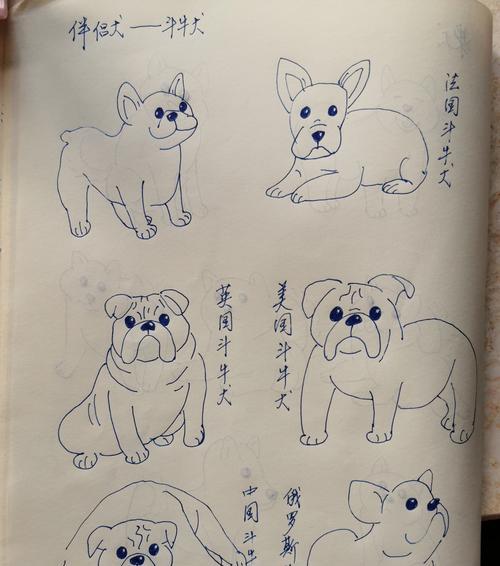 伴侣犬——斗牛犬
法国斗牛犬
英国斗牛犬
美国斗牛犬
中国斗牛
俄罗斯